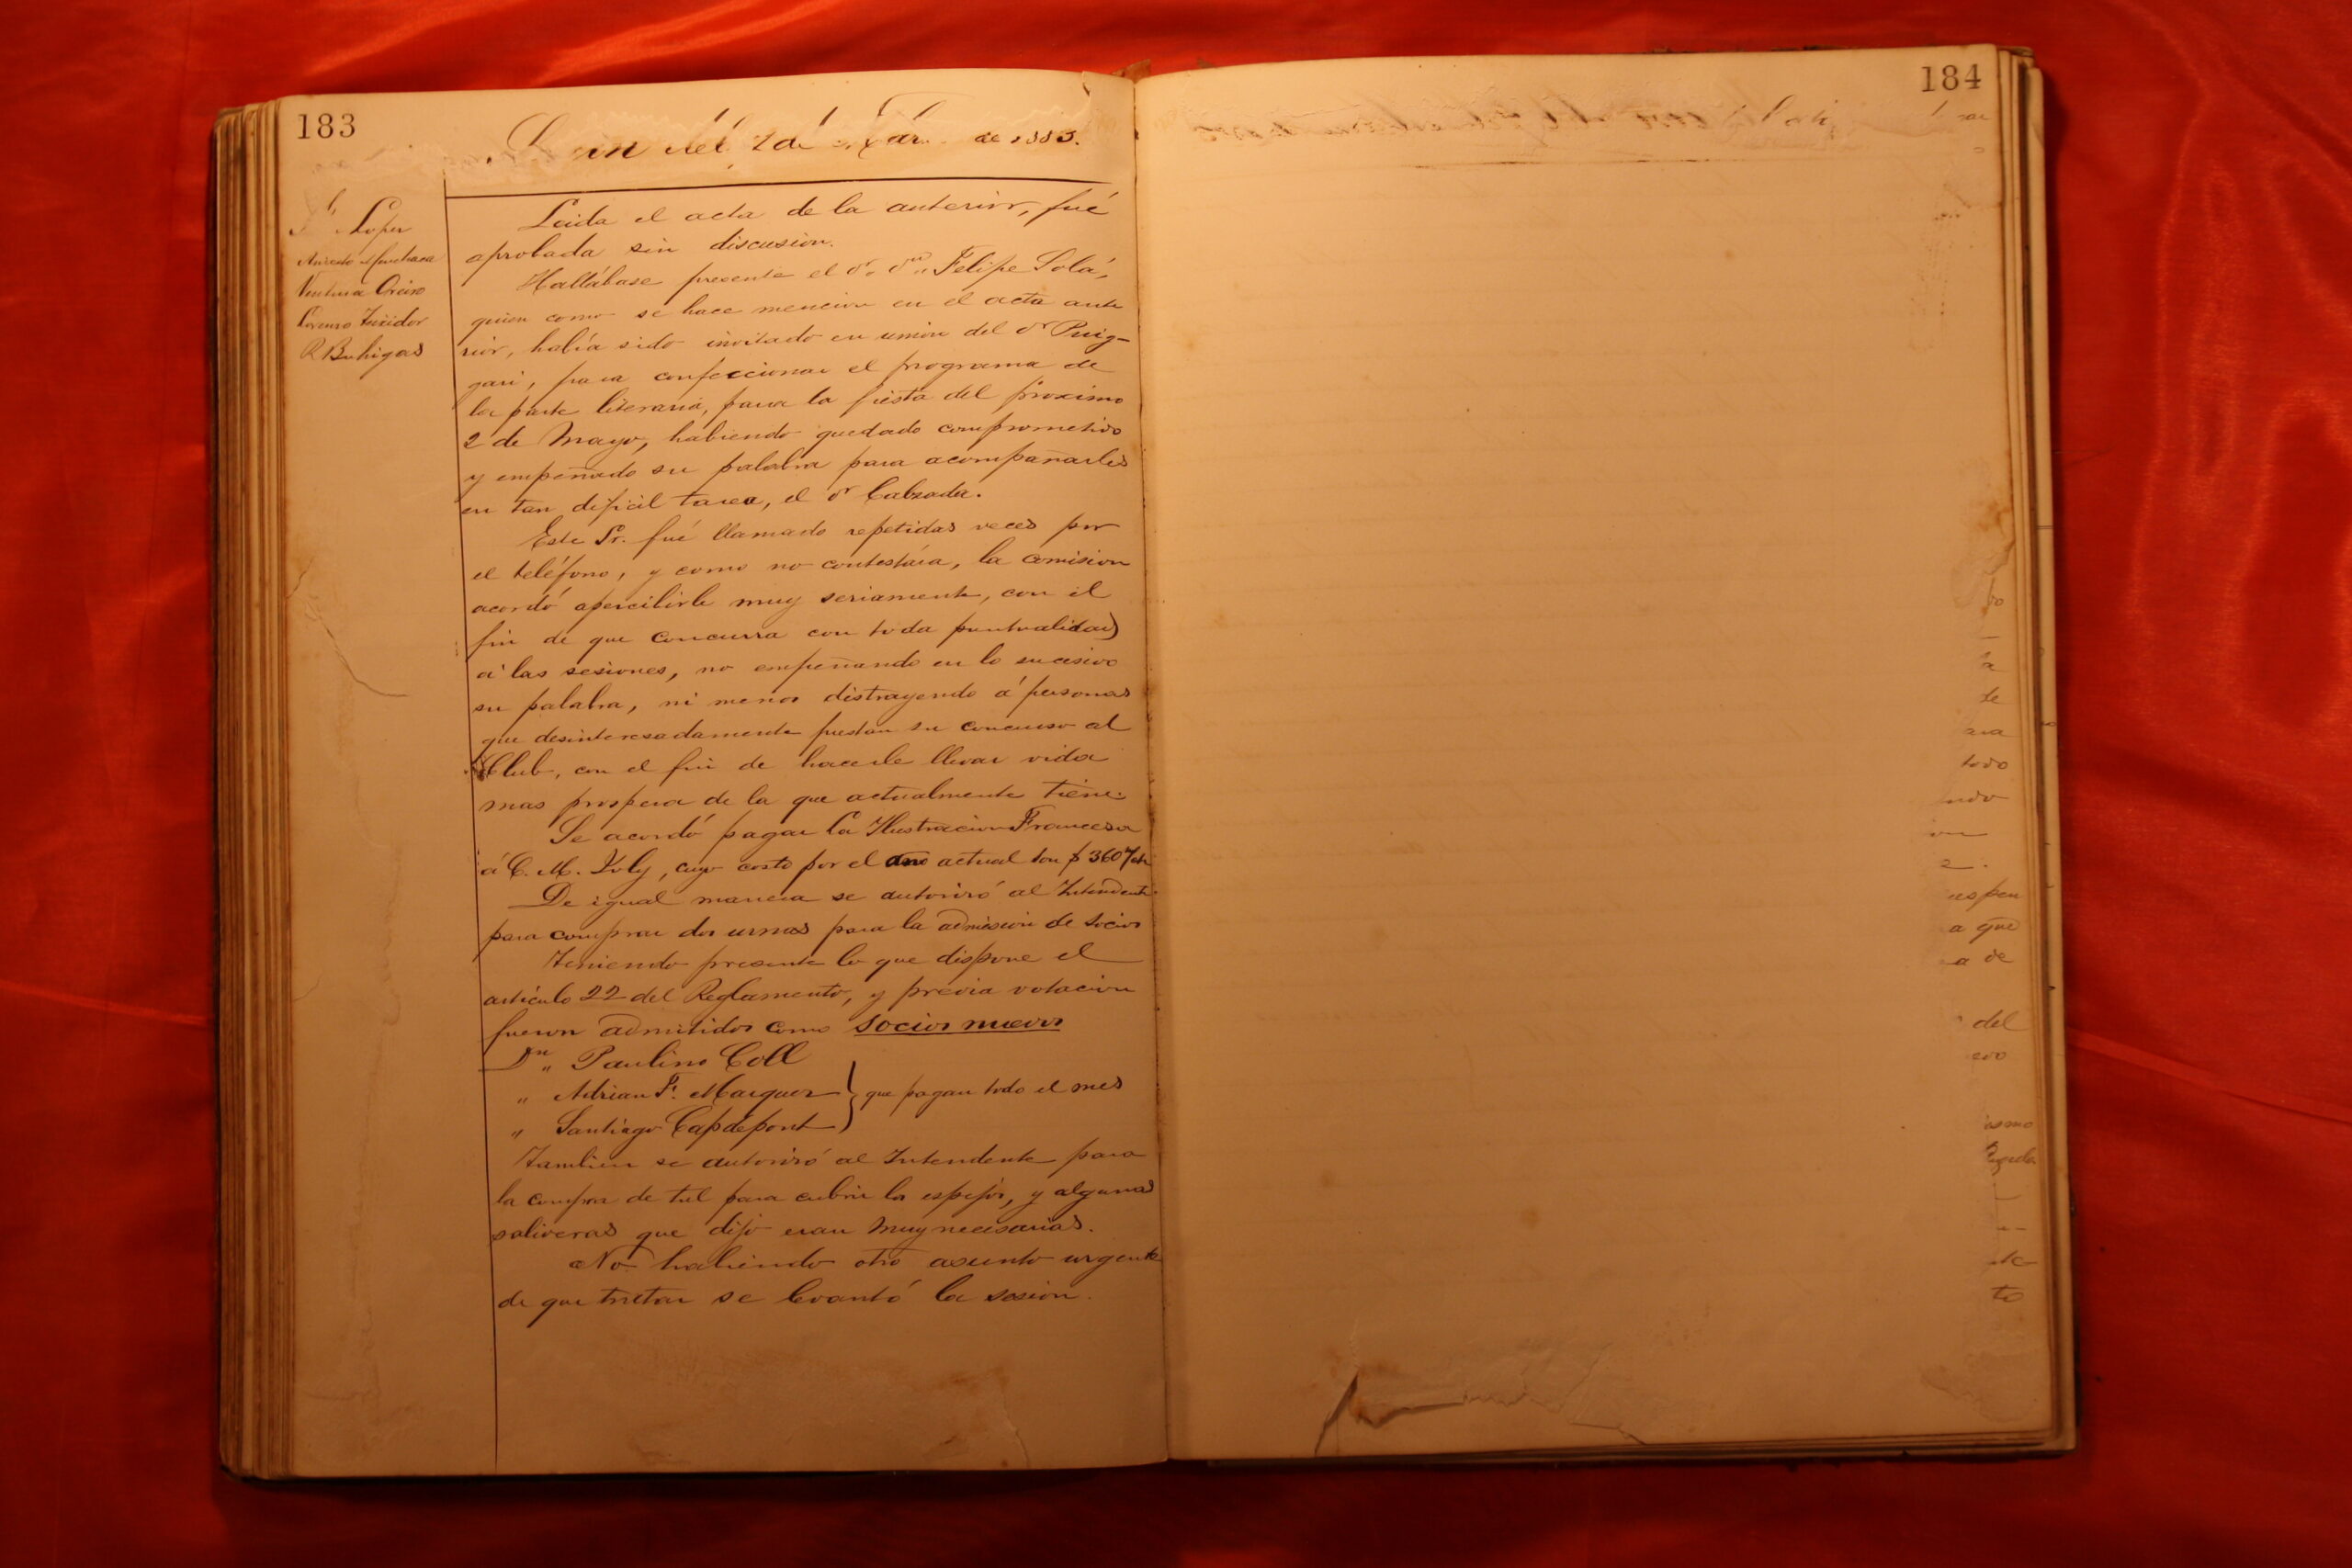 183
de 1883.
Lopez
Ventura Oreiro
Lorenzo Teixidor
R Buhigas
Leida el acta de la anterior, fué
aprobada sin discusion.
Hallábase presente el Sr. Dn. Felipe Solá,
quien como se hace mencion en el acta ante
rior, habia sido invitado en union del Sr Puig-
gari, para confeccionar el programa de
la parte literaria, para la fiesta del proximo
2 de Mayo, habiendo quedado comprometido
y empeñado su palabra para acompañarles
en tan dificil tarea, el Sr Calzada.
Este Sr. fué llamado repetidas veces por
el teléfono, y como no contestára, la comision
acordó apercibirle muy seriamente, con el
fin de que concurra con toda puntualidad
á las sesiones, no empeñando en lo sucesivo
su palabra, ni menos distrayendo á personas
que desinteresadamente prestan su concurso al
Club, con el fin de hacerle llevar vida
mas prospera de la que actualmente tiene.
Se acordó pagar la Ilustracion Francesa
á C. M. Joly, cuyo costo por el año actual son $ 360
De igual manera se autorizó al Intendente
para comprar dos urnas para la admision de socios
Teniendo presente lo que dispone el
artículo 22 del Reglamento, y prévia votacion
fueron admitidos como socios nuevos
Dn " Paulino Coll
" Adrian F. Marquez } que pagan todo el mes
" Santiago Capdepont
Tambien se autorizó al Intendente para
la compra de tul para cubrir los espejos, y algunas
saliveras que dijo eran muy necesarias.
No habiendo otro asunto urgente
de que tratar se levantó la sesion.
184
to
la
de
todo
a que
a de
del
to